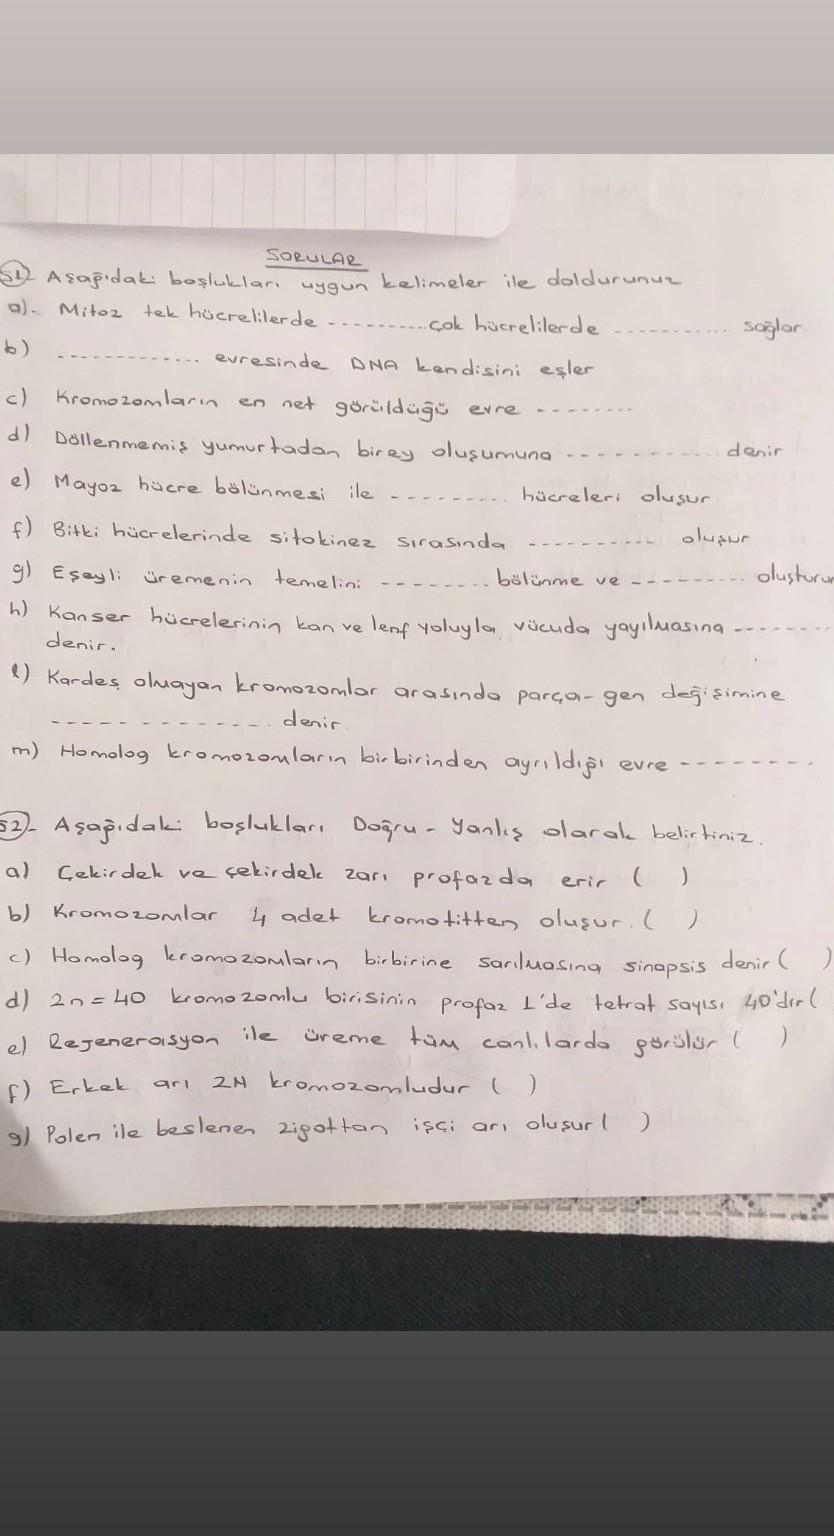 SORULAR
S1) Aşağıdaki boşlukları uygun kelimeler ile doldurunuz
a). Mitoz tek hücrelilerde ---------- çok hücrelilerde ------------ sağlar.
b) ------------- evresinde DNA kendisini eşler
c) Kromozomların en net görüldüğü evre --------
d) Döllenmemiş yumurtadan birey oluşumuna ------------ denir
e) Mayoz hücre bölünmesi ile --------- hücreleri oluşur
f) Bitki hücrelerinde sitokinez sırasında ----------- oluşur
g) Eşeyli üremenin temelini -------- bölünme ve --------- oluşturur
h) Kanser hücrelerinin kan ve lenf yoluyla vücuda yayılmasına --------
denir.
l) Kardeş olmayan kromozomlar arasında parça-gen değişimine
-------------- denir.
m) Homolog kromozomların birbirinden ayrıldığı evre ---------
S2)- Aşağıdaki boşlukları Doğru - Yanlış olarak belirtiniz.
a) Çekirdek ve çekirdek zarı profazda erir ( )
b) Kromozomlar 4 adet kromotitten oluşur. ( )
c) Homolog kromozomların birbirine sarılmasına sinapsis denir ( )
d) 2n = 40 kromozomlu birisinin profaz 1'de tetrat sayısı 40'dır (
e) Rejenerasyon ile üreme tüm canlılarda görülür ( )
f) Erkek arı 2N kromozomludur ( )
g) Polen ile beslenen zigottan işçi arı oluşur ( )